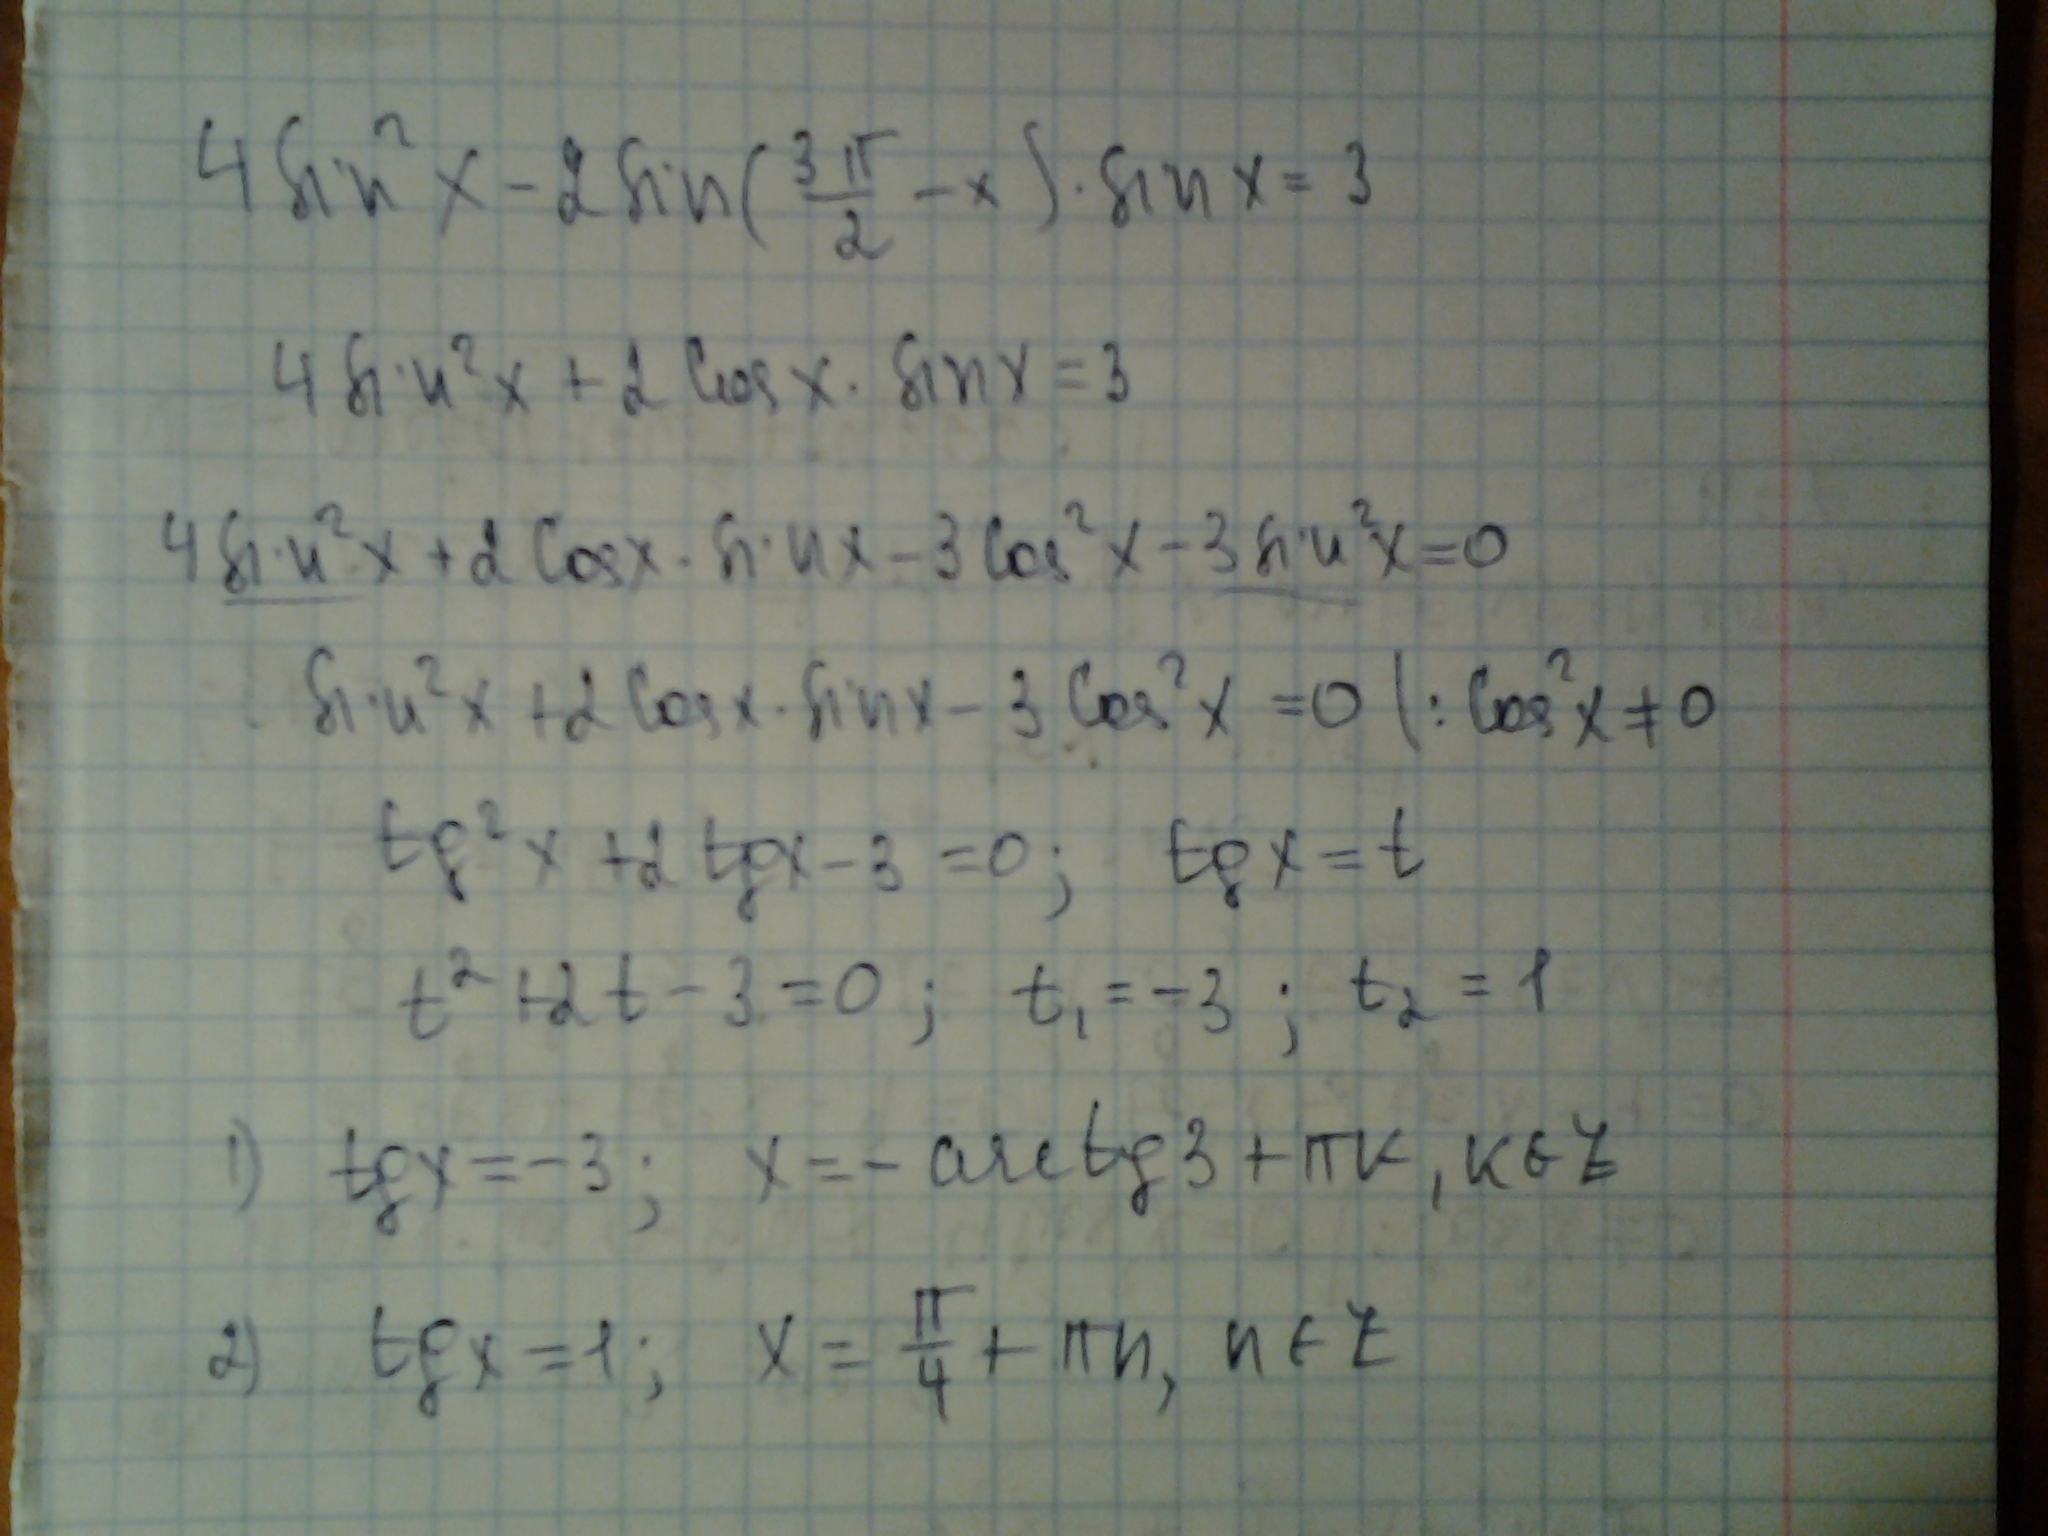 4 sin² x - 2 sin(3π/2 - x) · sin x = 3
4 sin² x + 2 cos x · sin x = 3
4 sin² x + 2 cos x · sin x - 3 cos² x - 3 sin² x = 0
sin² x + 2 cos x · sin x - 3 cos² x = 0 |: cos² x ≠ 0
tg² x + 2 tg x - 3 = 0; tg x = t
t² + 2t - 3 = 0; t₁ = -3; t₂ = 1
1) tg x = -3; x = - arctg 3 + πk, k ∈ Z
2) tg x = 1; x = π/4 + πn, n ∈ Z